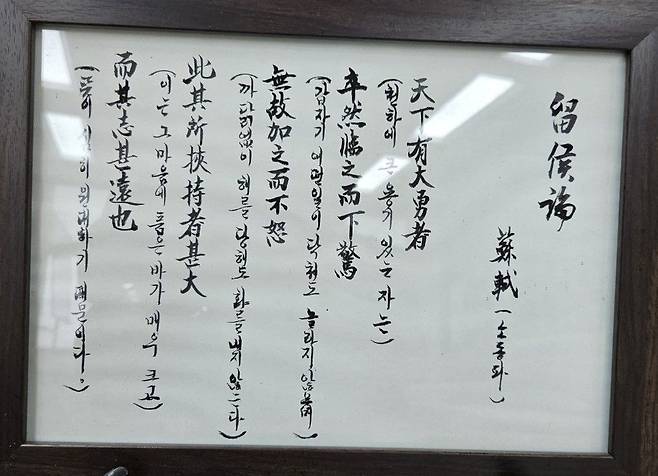 留侯論
蘇軾 (소동파)
天下有大勇者
(천하에 큰 용기 있는 자는)
卒然臨之而下驚
(갑자기 어떤일이 닥쳐도 놀라지 않으며)
無故加之而不怒
(까닭없이 해를 당해도 화를 내지 않는다)
此其所挾持者甚大
(이는 그 마음에 품은 바가 매우 크고)
而其志甚遠也
(뜻이 심히 원대하기 때문이다.)